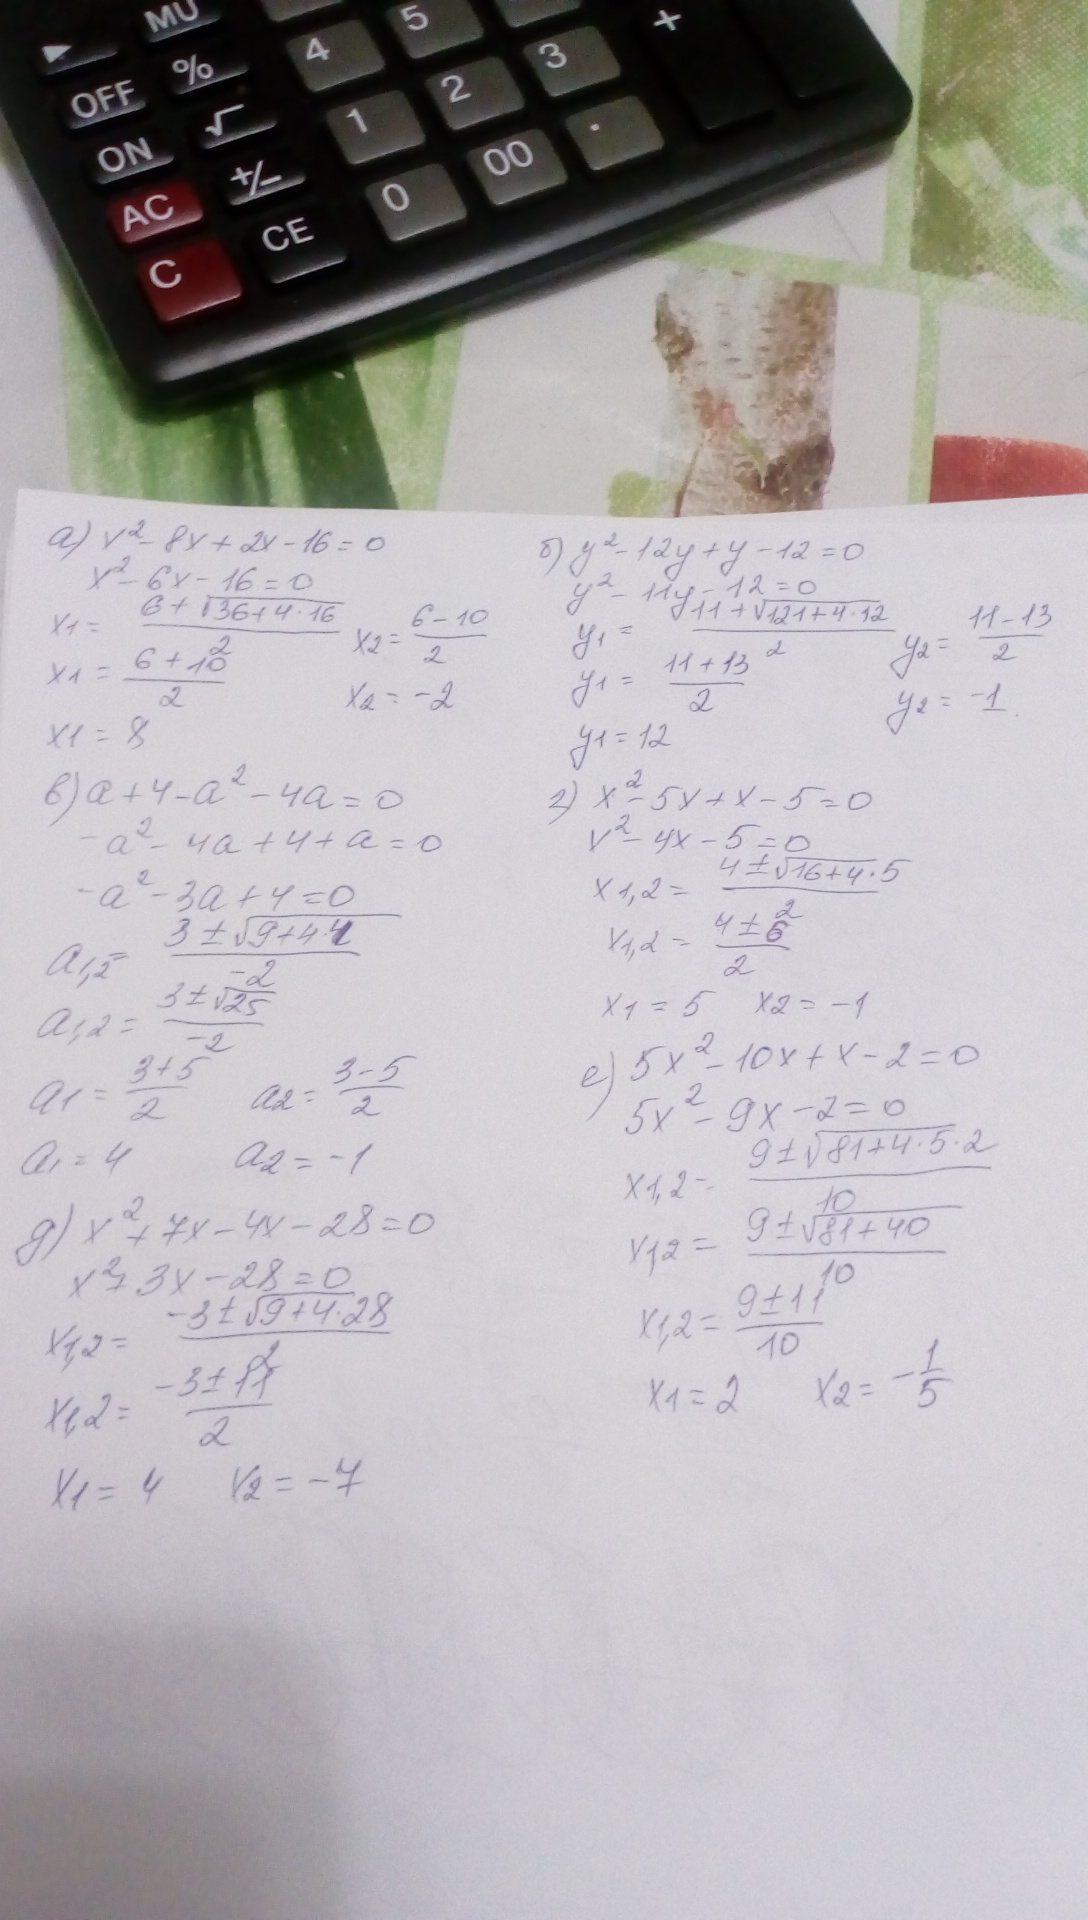 MU
5
% 4
3 +
OFF
2
√ 1
ON
00 .
+/-
0
AC
CE
C
а) x²-8x+2x-16=0
x²-6x-16=0
x1= (6+√(36+4·16))/2 x2= (6-10)/2
x1= (6+10)/2 x2=-2
x1=8
б) y²-12y+y-12=0
y²-11y-12=0
y1= (11+√(121+4·12))/2 y2= (11-13)/2
y1= (11+13)/2 y2=-1
y1=12
в) a+4-a²-4a=0
-a²-4a+4+a=0
-a²-3a+4=0
a1,2= (3±√(9+4·4))/-2
a1,2= (3±√25)/-2
a1= (3+5)/2 a2= (3-5)/2
a1=4 a2=-1
г) x²-5x+x-5=0
x²-4x-5=0
x1,2= (4±√(16+4·5))/2
x1,2= (4±6)/2
x1=5 x2=-1
д) x²+7x-4x-28=0
x²+3x-28=0
x1,2= (-3±√(9+4·28))/2
x1,2= (-3±11)/2
x1=4 x2=-7
е) 5x²-10x+x-2=0
5x²-9x-2=0
x1,2= (9±√(81+4·5·2))/10
x1,2= (9±√(81+40))/10
x1,2= (9±11)/10
x1=2 x2=-1/5